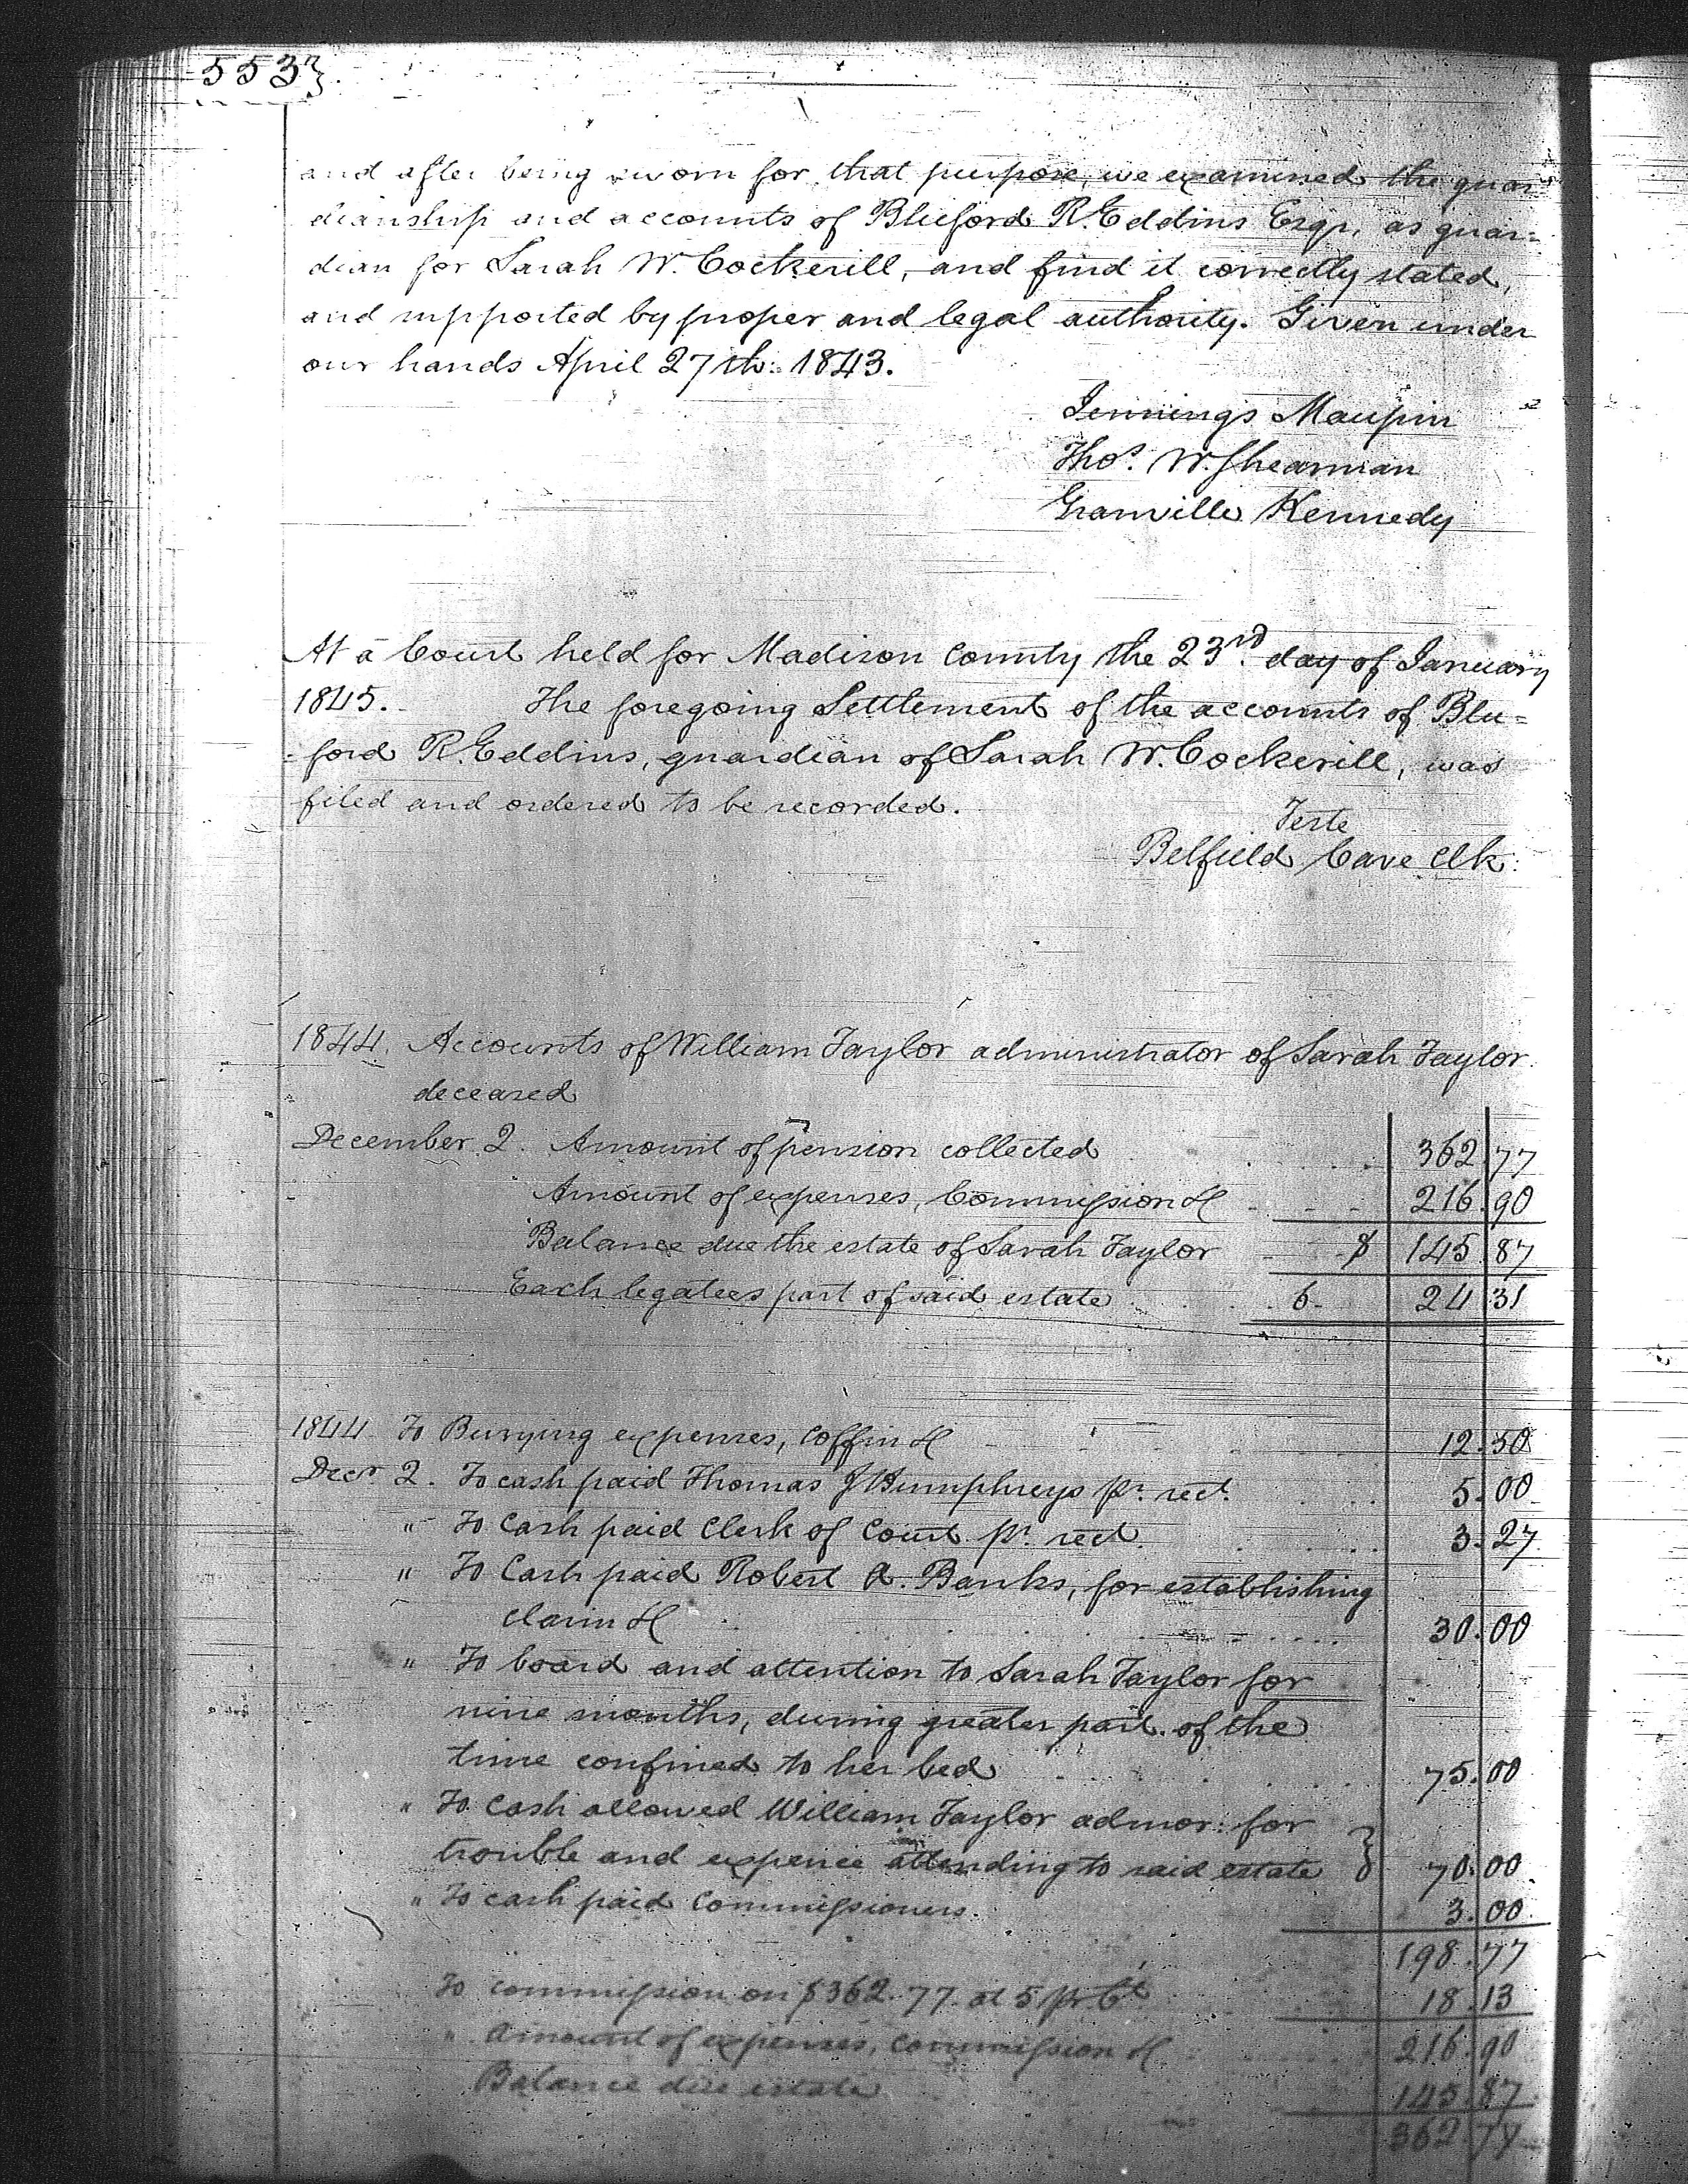 553}
and after being sworn for that purpose, we examined the guar
dianship and accounts of Bluford R. Eddins Esqr, as guar=
dian for Sarah W. Cockerill, and find it correctly stated,
and supported by proper and legal authority. Given under
our hands April 27th: 1843.
Jennings Maupin
Thos. W. Shearman
Granville Kennedy
At a Court held for Madison County the 23rd day of January
1845. The foregoing Settlement of the accounts of Blu=
=ford R. Eddins, guardian of Sarah W. Cockerill, was
filed and ordered to be recorded.
Teste
Belfield Cave Clk:
1844. Accounts of William Taylor administrator of Sarah Taylor
deceased
December 2. Amount of pension collected 362 77
Amount of expenses, Commission &c 216.90
Balance due the estate of Sarah Taylor $ 145.87
Each legatees part of said estate 6 24 31
1844 To Burying expenses, Coffin &c 12.50
Decr 2. To cash paid Thomas J Humphreys pr. rect. 5.00
" To Cash paid Clerk of Court pr. rect. 3.27
" To Cash paid Robert A. Banks, for establishing
claim &c 30.00
" To board and attention to Sarah Taylor for
nine months, during greater part of the
time confined to her bed 75.00
" To cash allowed William Taylor admor: for
trouble and expence attending to said estate } 70.00
" To cash paid Commissioners. 3.00
198.77
To commission on $362.77 at 5 pr. Ct. 18.13
" Amount of expenses, commission &c 216.90
Balance due estate 145.87
362 77